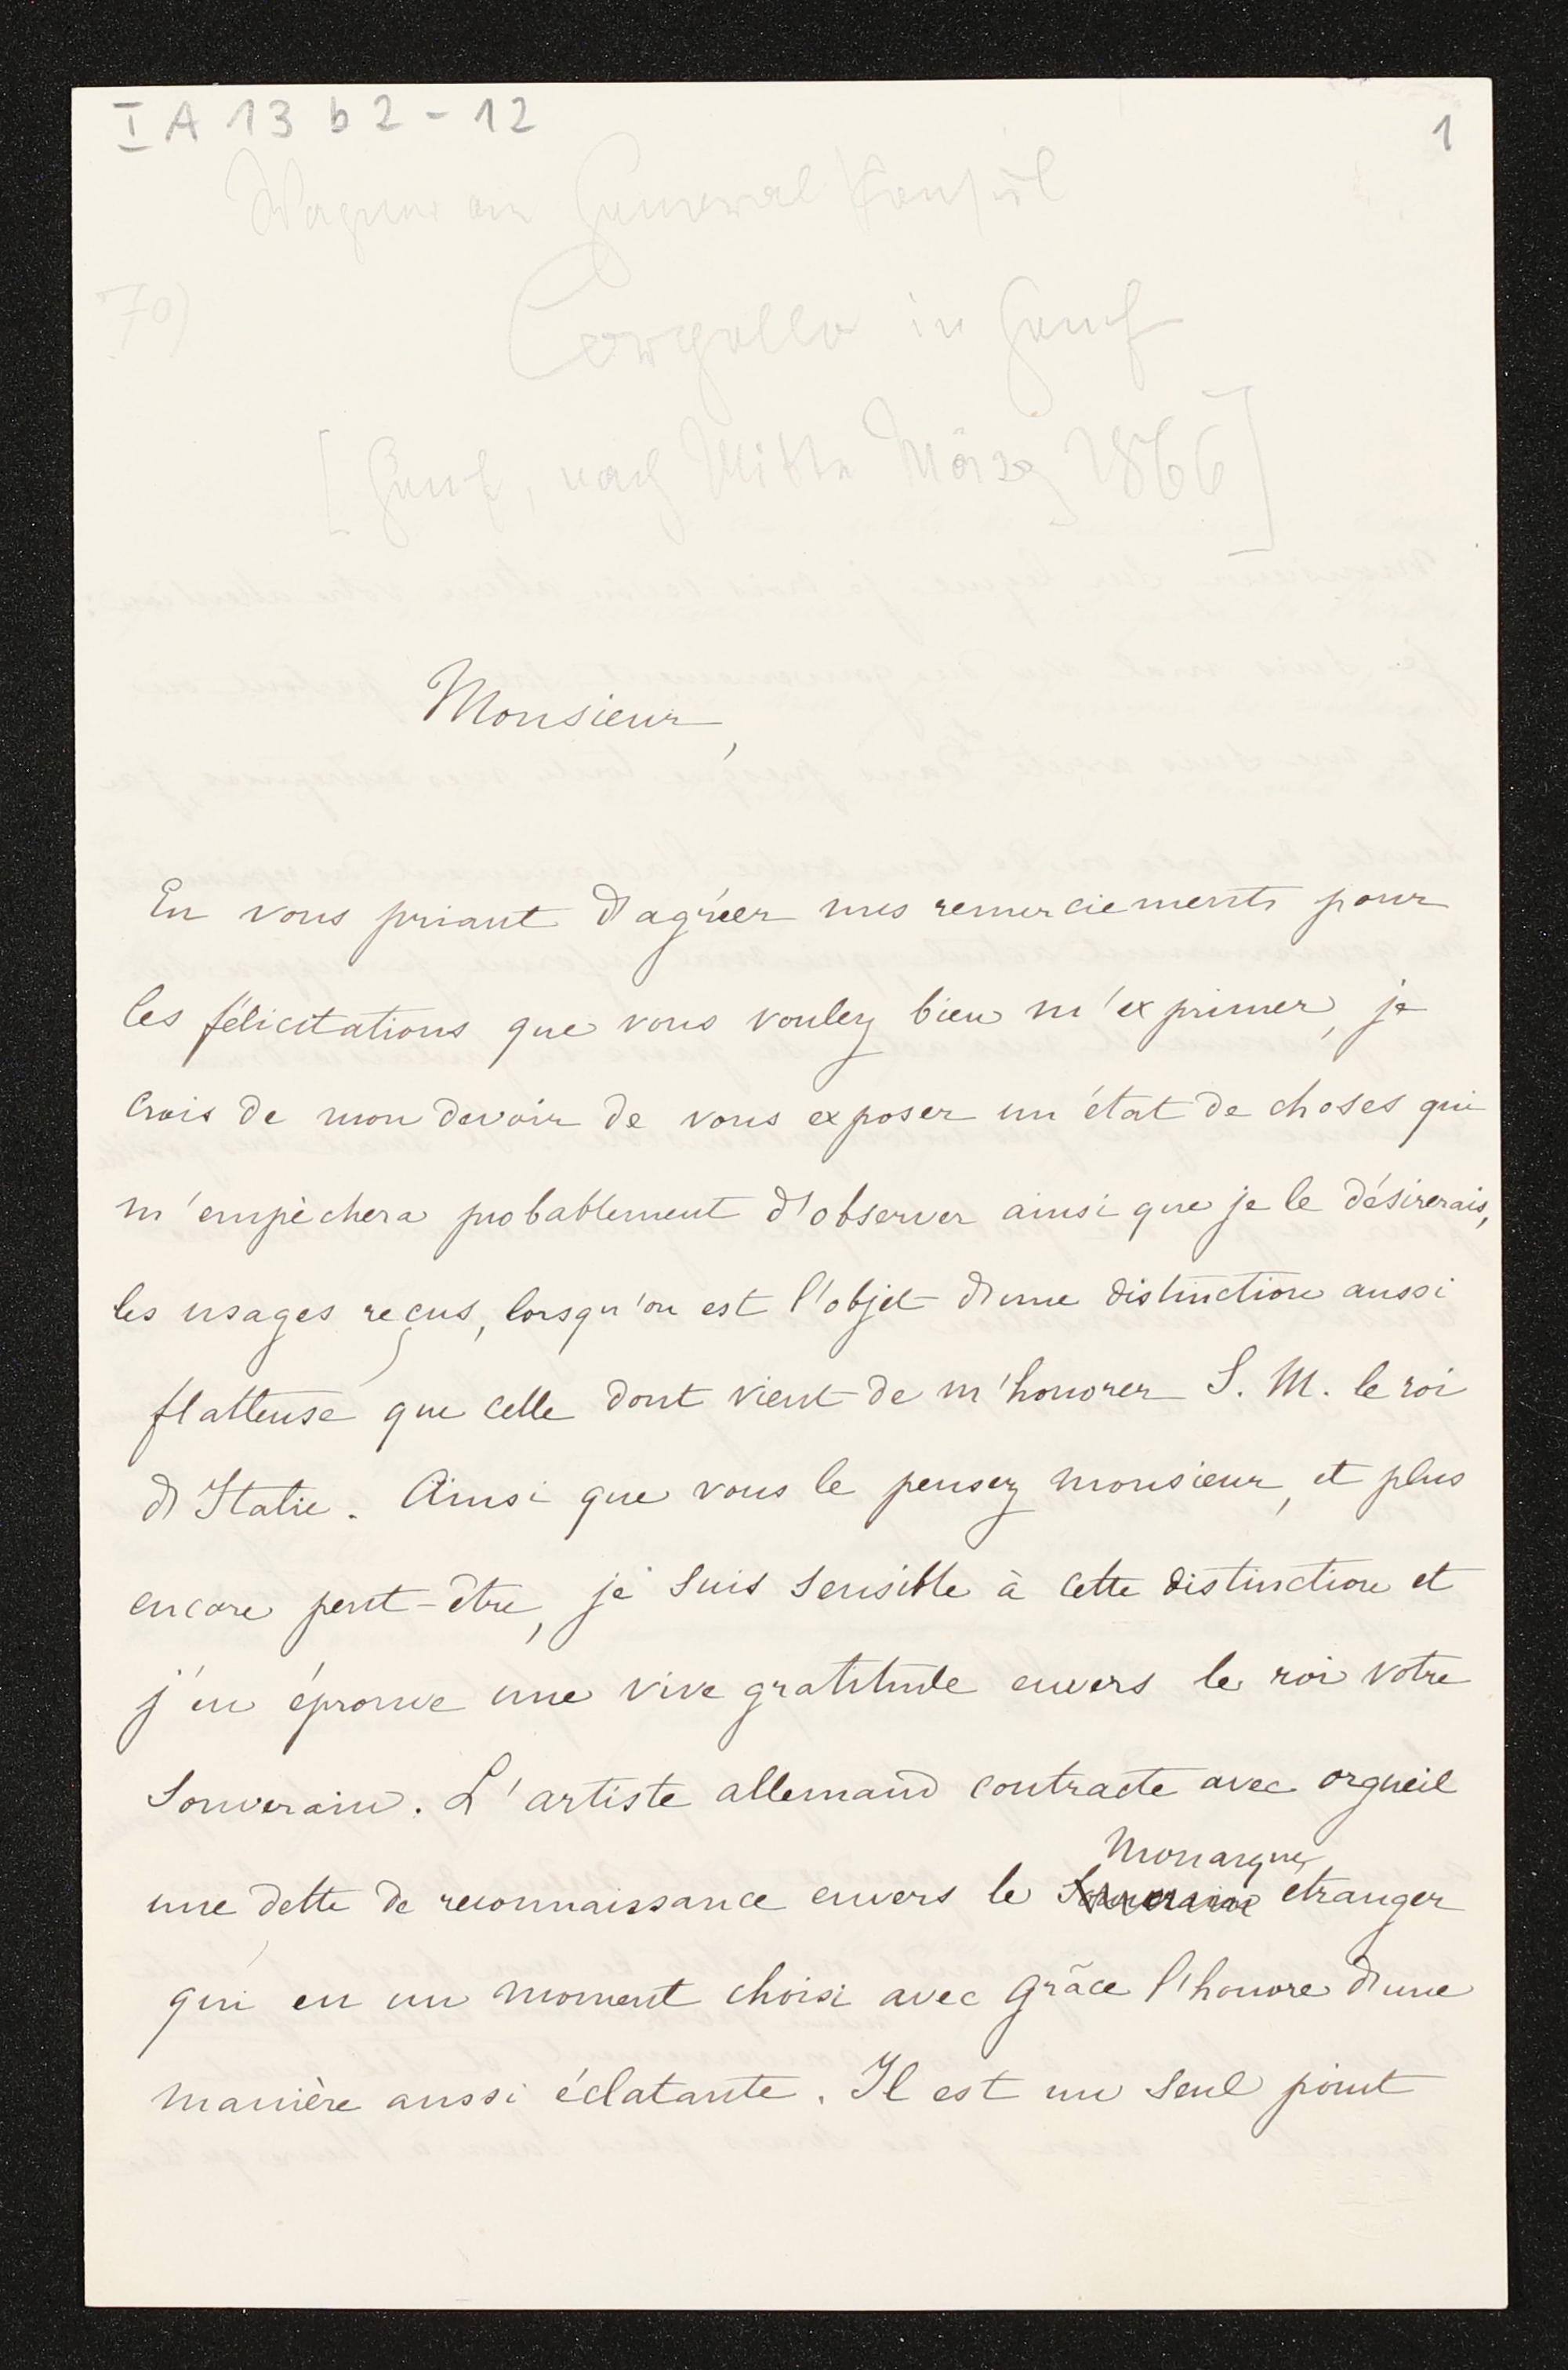 I A 13 b 2 - 12
1
Wagner an General Konsul
70)
in Genf
[Genf, nach Mitte März 1866]
Monsieur,
En vous priant d'agréer mes remerciements pour
les félicitations que vous voulez bien m'exprimer, je
crois de mon devoir de vous exposer un état de choses qui
m'empèchera probablement d'observer ainsi que je le désirerais,
les usages reçus, lorsqu'on est l'objet d'une distinction aussi
flatteuse que celle dont vient de m'honorer S. M. le roi
d'Italie. Ainsi que vous le pensez monsieur, et plus
encore peut-être, je suis sensible à cette distinction et
j'en éprouve une vive gratitude envers le roi votre
Souverain. L'artiste allemand contracte avec orgueil
Monarque
une dette de reconnaissance envers le Souverain etranger
qui en un moment choisi avec grâce l'honore d'une
manière aussi éclatante. Il est un seul point